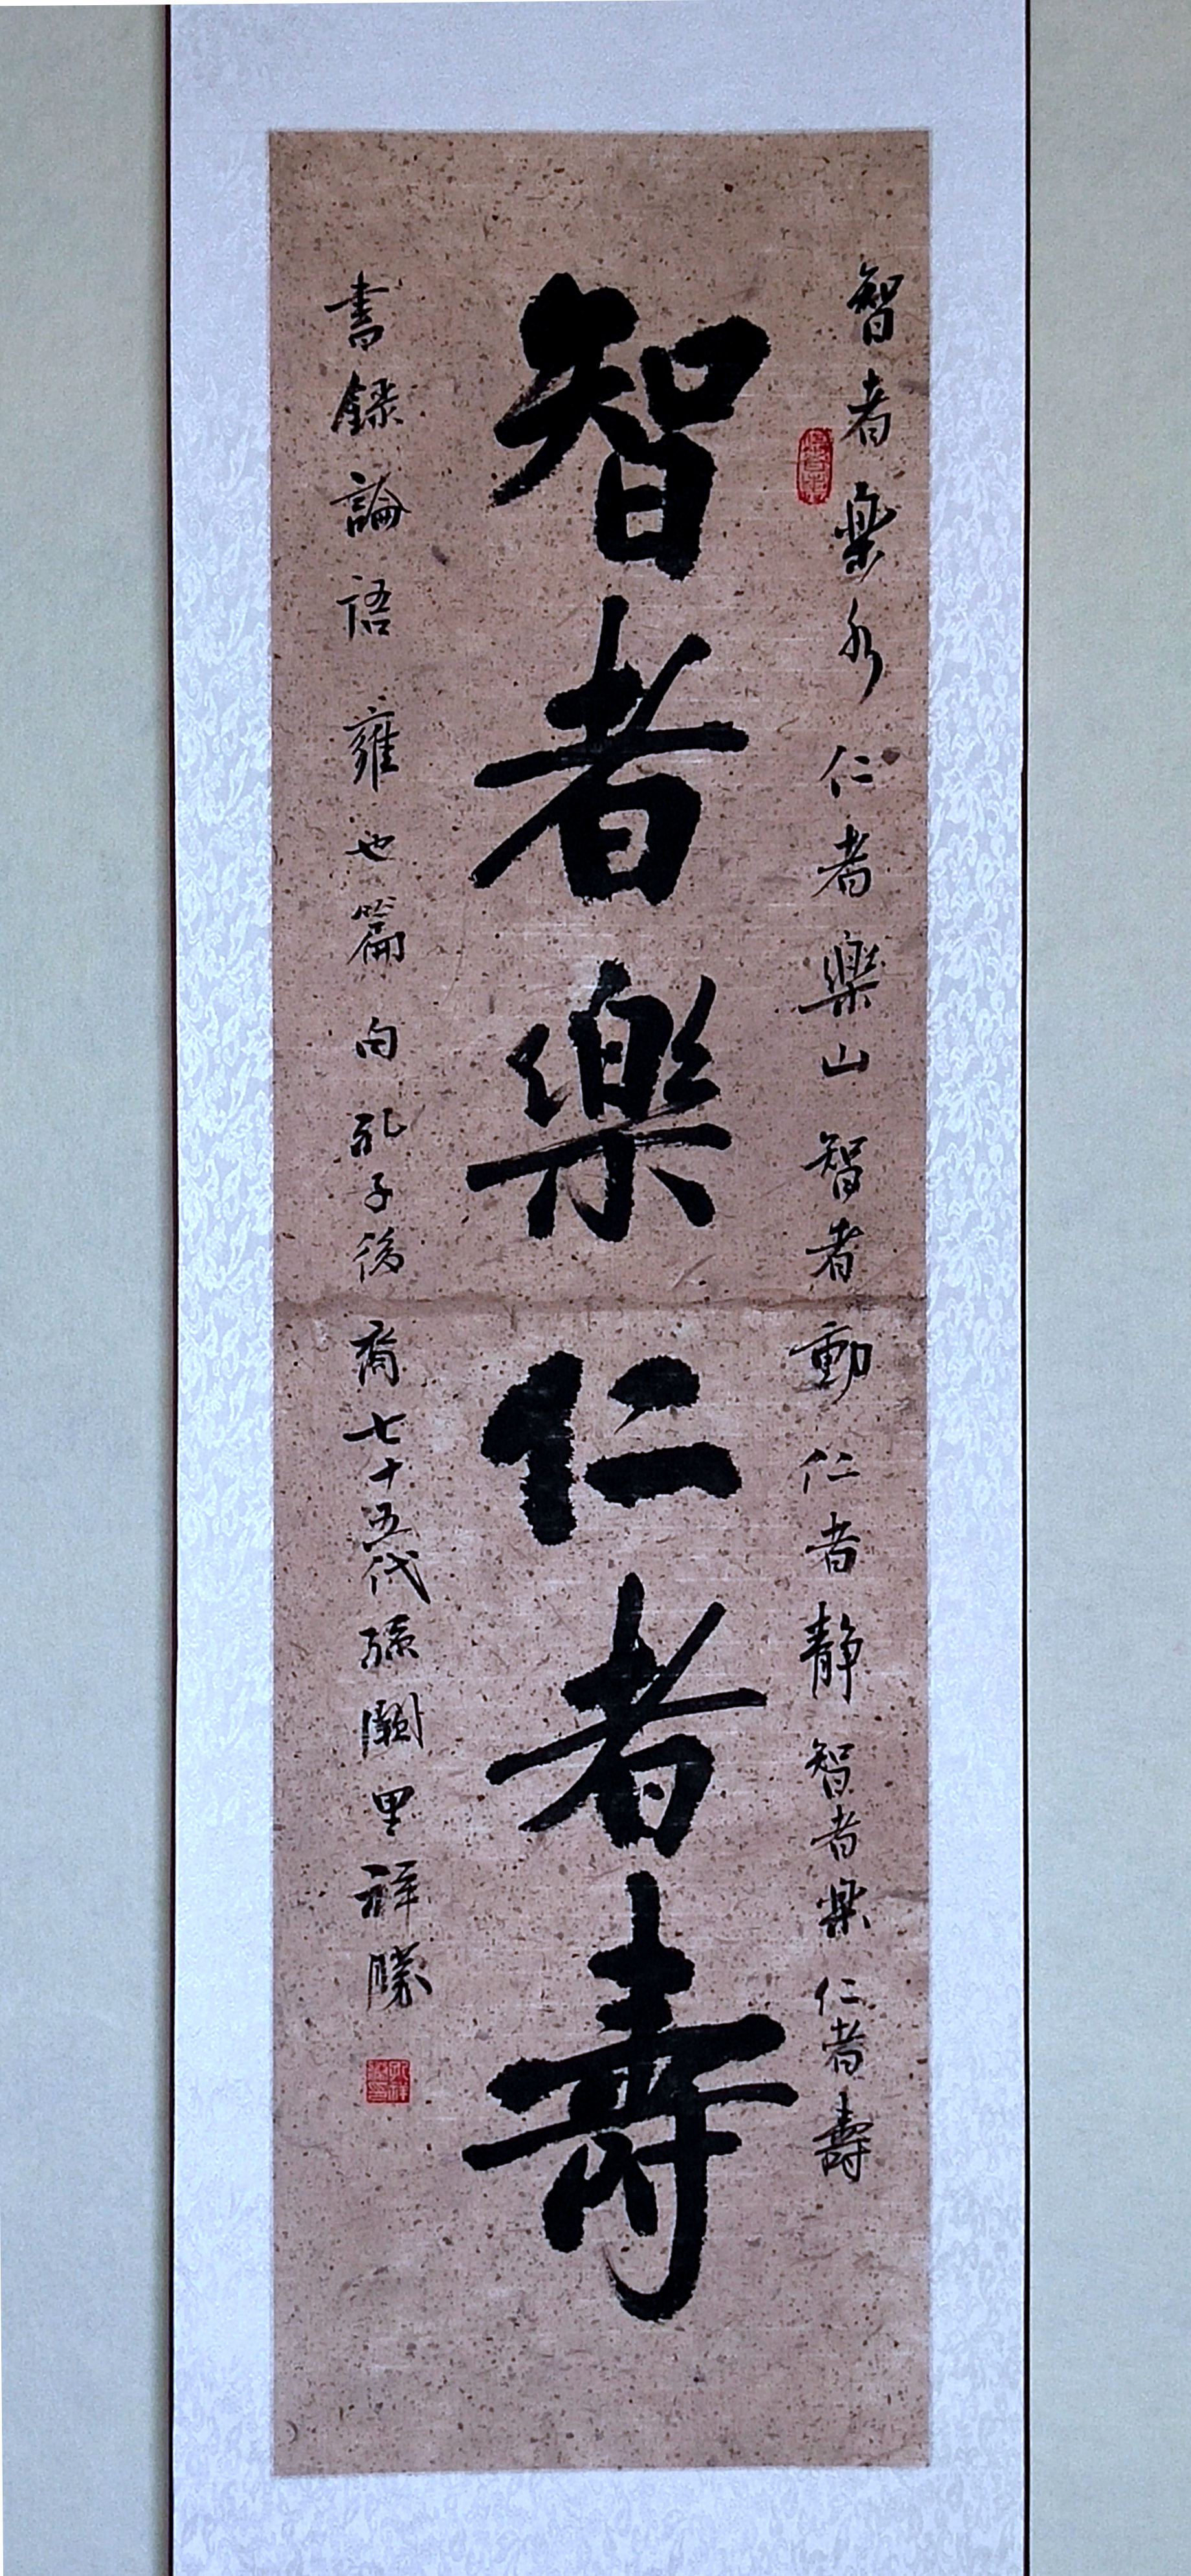 智者樂水仁者樂山智者動仁者靜智者樂仁者壽
智者樂仁者壽
書錄論語雍也篇句孔子後裔七十五代孫闕里祥勝